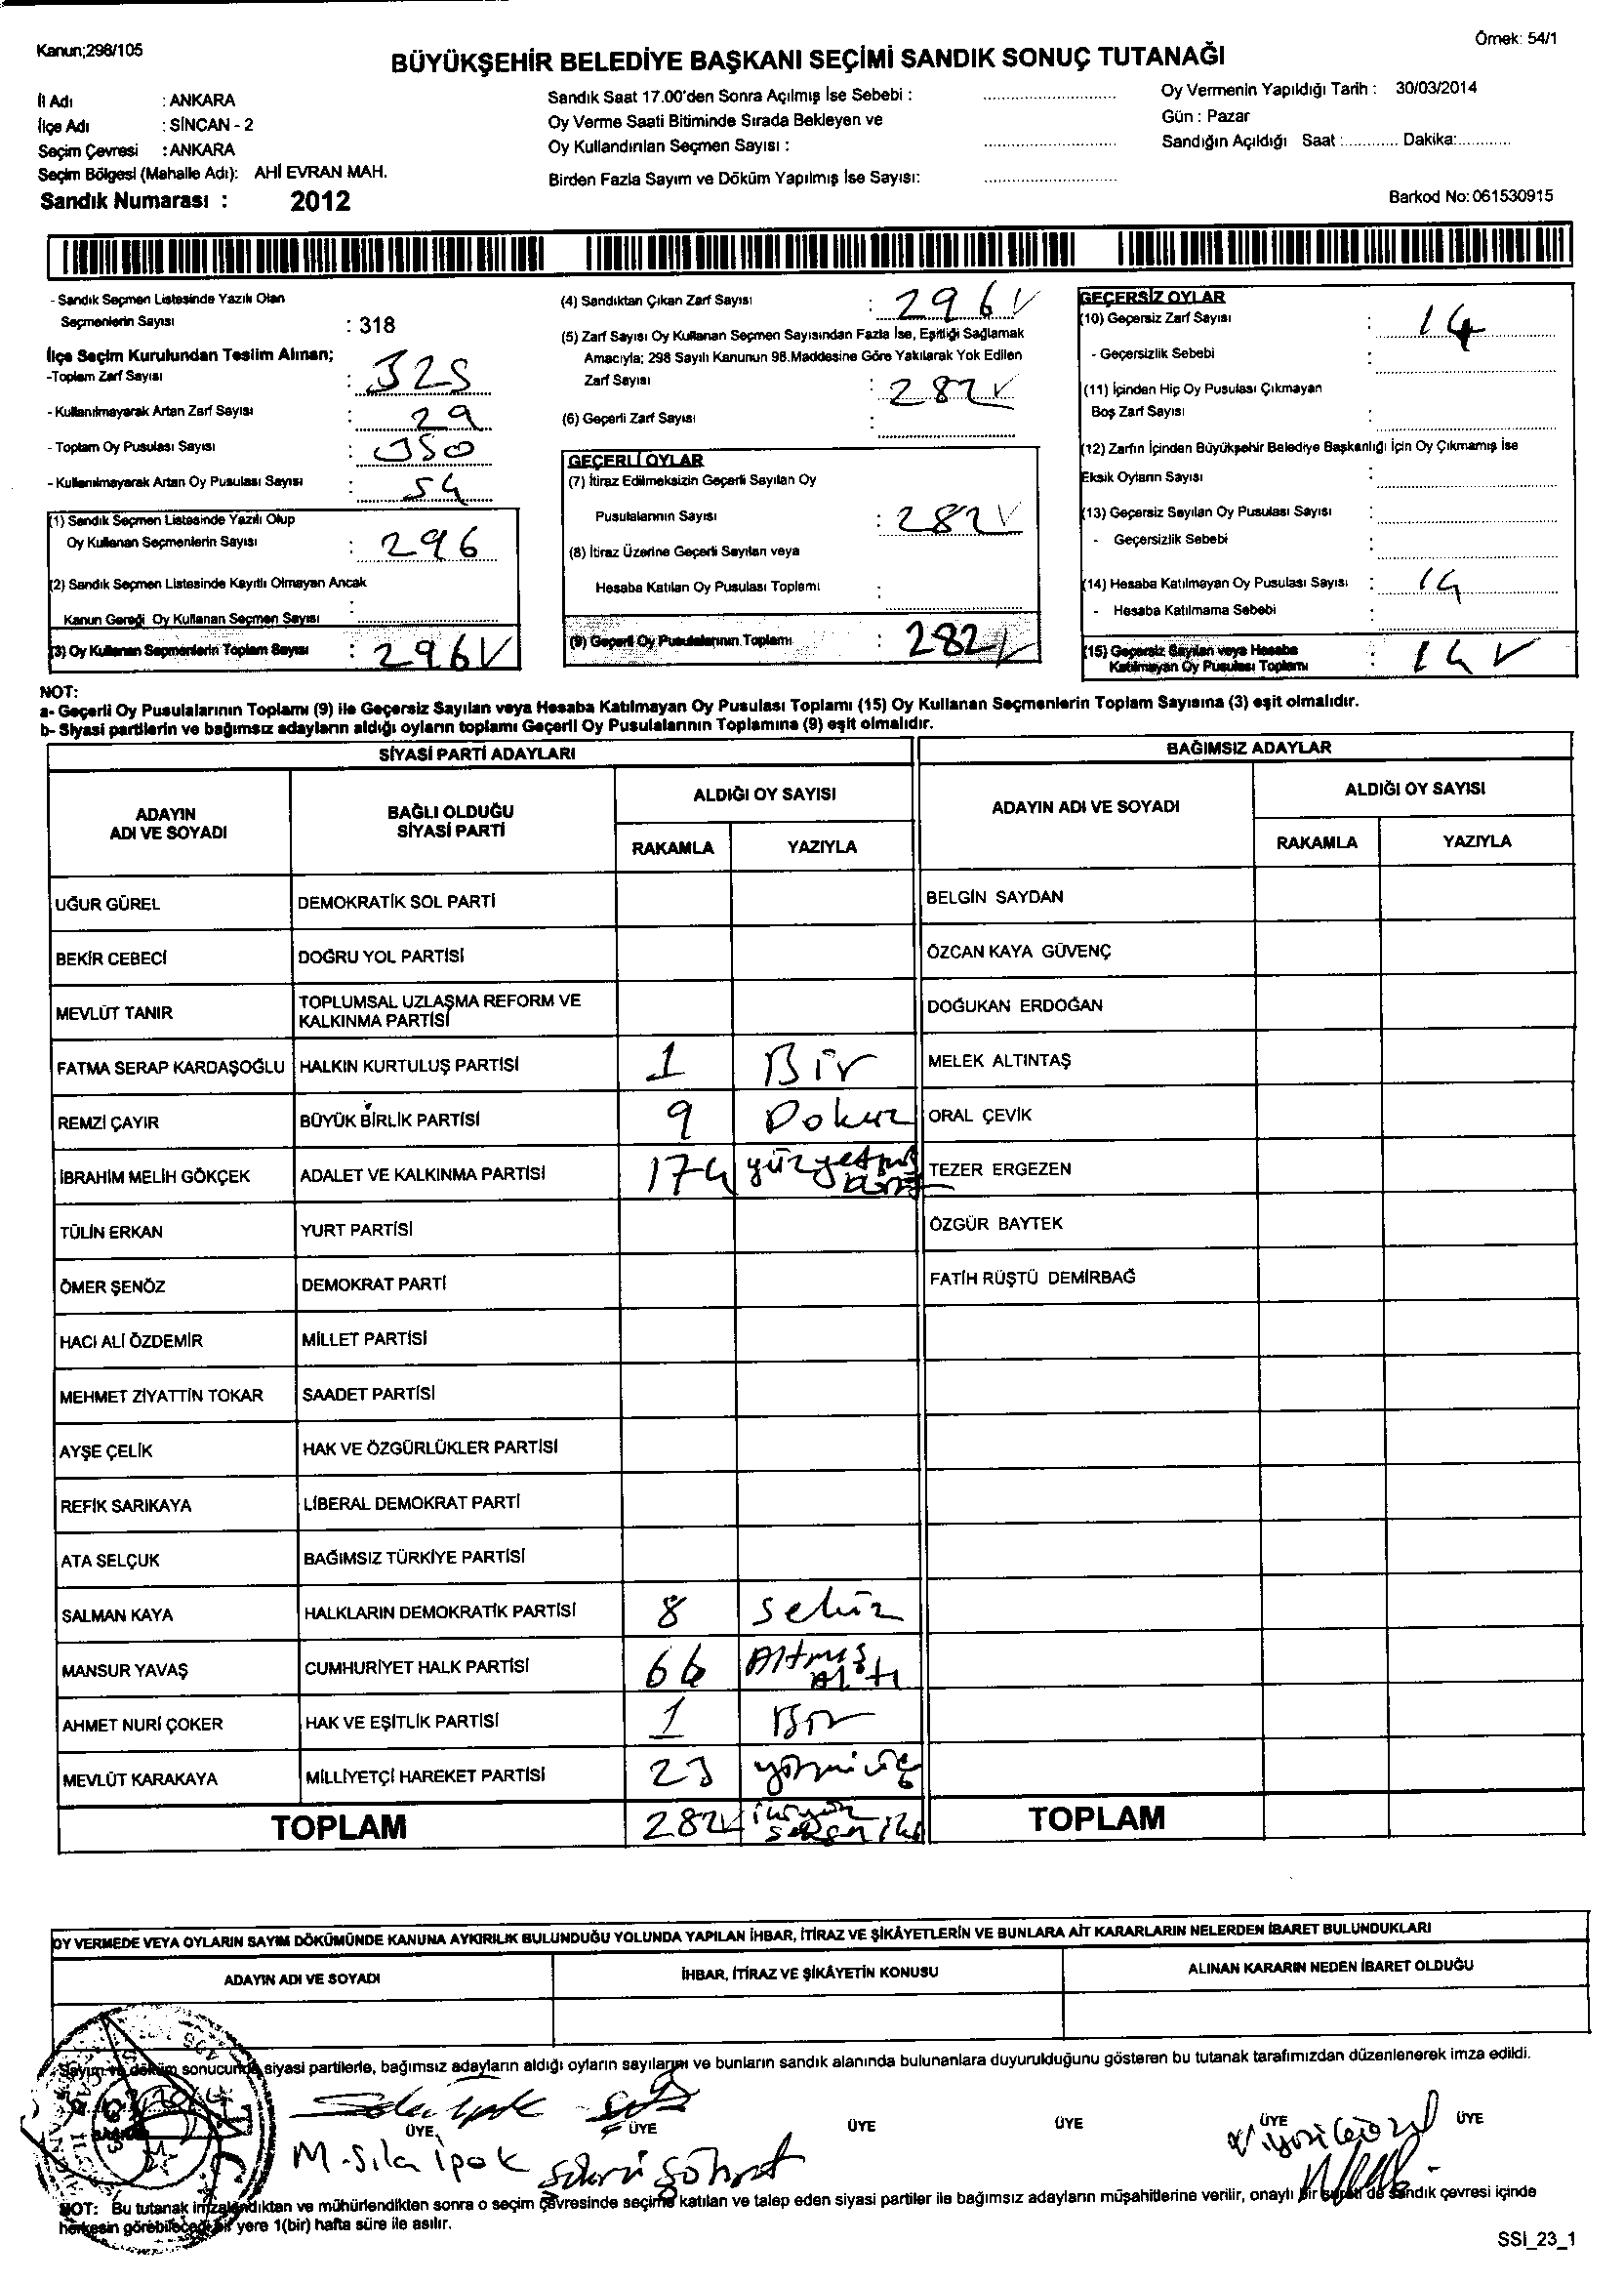 Kanun;298/105
Örnek: 54/1
BÜYÜKŞEHİR BELEDİYE BAŞKANI SEÇİMİ SANDIK SONUÇ TUTANAĞI
İl Adı : ANKARA
İlçe Adı : SİNCAN - 2
Seçim Çevresi : ANKARA
Seçim Bölgesi (Mahalle Adı): AHİ EVRAN MAH.
Sandık Numarası : 2012
Sandık Saat 17.00'den Sonra Açılmış İse Sebebi :
Oy Verme Saati Bitiminde Sırada Bekleyen ve
Oy Kullandırılan Seçmen Sayısı :
Birden Fazla Sayım ve Döküm Yapılmış İse Sayısı:
Oy Vermenin Yapıldığı Tarih : 30/03/2014
Gün : Pazar
Sandığın Açıldığı Saat :............ Dakika:............
Barkod No: 061530915
- Sandık Seçmen Listesinde Yazılı Olan
Seçmenlerin Sayısı : 318
İlçe Seçim Kurulundan Teslim Alınan;
-Toplam Zarf Sayısı : 325
- Kullanılmayarak Artan Zarf Sayısı : 29
- Toplam Oy Pusulası Sayısı : 350
- Kullanılmayarak Artan Oy Pusulası Sayısı : 54
(1) Sandık Seçmen Listesinde Yazılı Olup
Oy Kullanan Seçmenlerin Sayısı : 296
(2) Sandık Seçmen Listesinde Kayıtlı Olmayan Ancak
Kanun Gereği Oy Kullanan Seçmen Sayısı :
(3) Oy Kullanan Seçmenlerin Toplam Sayısı : 296 V
(4) Sandıktan Çıkan Zarf Sayısı : 296 V
(5) Zarf Sayısı Oy Kullanan Seçmen Sayısından Fazla İse, Eşitliği Sağlamak
Amacıyla; 298 Sayılı Kanunun 98.Maddesine Göre Yakılarak Yok Edilen
Zarf Sayısı : 282 V
(6) Geçerli Zarf Sayısı :
GEÇERLİ OYLAR
(7) İtiraz Edilmeksizin Geçerli Sayılan Oy
Pusulalarının Sayısı : 282 V
(8) İtiraz Üzerine Geçerli Sayılan veya
Hesaba Katılan Oy Pusulası Toplamı :
(9) Geçerli Oy Pusulalarının Toplamı : 282 V
GEÇERSİZ OYLAR
(10) Geçersiz Zarf Sayısı : 14
- Geçersizlik Sebebi :
(11) İçinden Hiç Oy Pusulası Çıkmayan
Boş Zarf Sayısı :
(12) Zarfın İçinden Büyükşehir Belediye Başkanlığı İçin Oy Çıkmamış İse
Eksik Oyların Sayısı :
(13) Geçersiz Sayılan Oy Pusulası Sayısı :
- Geçersizlik Sebebi :
(14) Hesaba Katılmayan Oy Pusulası Sayısı : 14
- Hesaba Katılmama Sebebi :
(15) Geçersiz Sayılan veya Hesaba
Katılmayan Oy Pusulası Toplamı : 14 V
NOT:
a- Geçerli Oy Pusulalarının Toplamı (9) ile Geçersiz Sayılan veya Hesaba Katılmayan Oy Pusulası Toplamı (15) Oy Kullanan Seçmenlerin Toplam Sayısına (3) eşit olmalıdır.
b- Siyasi partilerin ve bağımsız adayların aldığı oyların toplamı Geçerli Oy Pusulalarının Toplamına (9) eşit olmalıdır.
SİYASİ PARTİ ADAYLARI
ADAYIN ADI VE SOYADI
BAĞLI OLDUĞU SİYASİ PARTİ
ALDIĞI OY SAYISI
RAKAMLA YAZIYLA
UĞUR GÜREL DEMOKRATİK SOL PARTİ
BEKİR CEBECİ DOĞRU YOL PARTİSİ
MEVLÜT TANIR TOPLUMSAL UZLAŞMA REFORM VE KALKINMA PARTİSİ
FATMA SERAP KARDAŞOĞLU HALKIN KURTULUŞ PARTİSİ 1 Bir
REMZİ ÇAYIR BÜYÜK BİRLİK PARTİSİ 9 Dokuz
İBRAHİM MELİH GÖKÇEK ADALET VE KALKINMA PARTİSİ 174 yüzyetmiş dört
TÜLİN ERKAN YURT PARTİSİ
ÖMER ŞENÖZ DEMOKRAT PARTİ
HACI ALİ ÖZDEMİR MİLLET PARTİSİ
MEHMET ZİYATTİN TOKAR SAADET PARTİSİ
AYŞE ÇELİK HAK VE ÖZGÜRLÜKLER PARTİSİ
REFİK SARIKAYA LİBERAL DEMOKRAT PARTİ
ATA SELÇUK BAĞIMSIZ TÜRKİYE PARTİSİ
SALMAN KAYA HALKLARIN DEMOKRATİK PARTİSİ 8 Sekiz
MANSUR YAVAŞ CUMHURİYET HALK PARTİSİ 66 Altmış Altı
AHMET NURİ ÇOKER HAK VE EŞİTLİK PARTİSİ 1 Bir
MEVLÜT KARAKAYA MİLLİYETÇİ HAREKET PARTİSİ 23 yirmi üç
TOPLAM 282 V ikiyüz seksen iki
BAĞIMSIZ ADAYLAR
ADAYIN ADI VE SOYADI
ALDIĞI OY SAYISI
RAKAMLA YAZIYLA
BELGİN SAYDAN
ÖZCAN KAYA GÜVENÇ
DOĞUKAN ERDOĞAN
MELEK ALTINTAŞ
ORAL ÇEVİK
TEZER ERGEZEN
ÖZGÜR BAYTEK
FATİH RÜŞTÜ DEMİRBAĞ
TOPLAM
OY VERMEDE VEYA OYLARIN SAYIM DÖKÜMÜNDE KANUNA AYKIRILIK BULUNDUĞU YOLUNDA YAPILAN İHBAR, İTİRAZ VE ŞİKÂYETLERİN VE BUNLARA AİT KARARLARIN NELERDEN İBARET BULUNDUKLARI
ADAYIN ADI VE SOYADI
İHBAR, İTİRAZ VE ŞİKÂYETİN KONUSU
ALINAN KARARIN NEDEN İBARET OLDUĞU
Sayım ve döküm sonucunda siyasi partilerle, bağımsız adayların aldığı oyların sayılarını ve bunların sandık alanında bulunanlara duyurulduğunu gösteren bu tutanak tarafımızdan düzenlenerek imza edildi.
ÜYE ÜYE ÜYE ÜYE ÜYE ÜYE
M. Sıla ipek
NOT: Bu tutanak imzalandıktan ve mühürlendikten sonra o seçim çevresinde seçime katılan ve talep eden siyasi partiler ile bağımsız adayların müşahitlerine verilir, onaylı bir sureti de sandık çevresi içinde
herkesin görebileceği bir yere 1(bir) hafta süre ile asılır.
SSİ_23_1